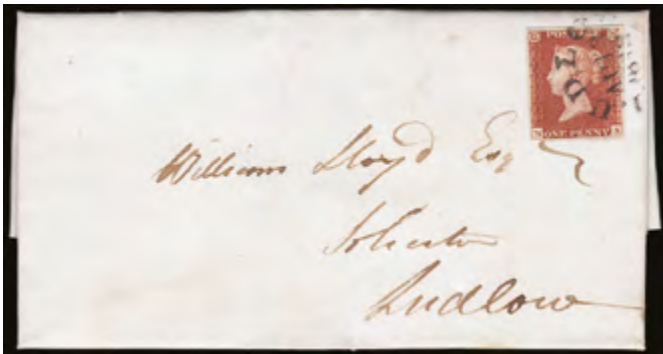 POSTAGE
ONE PENNY
Williams Lloyd Esq
Solicitor
Ludlow